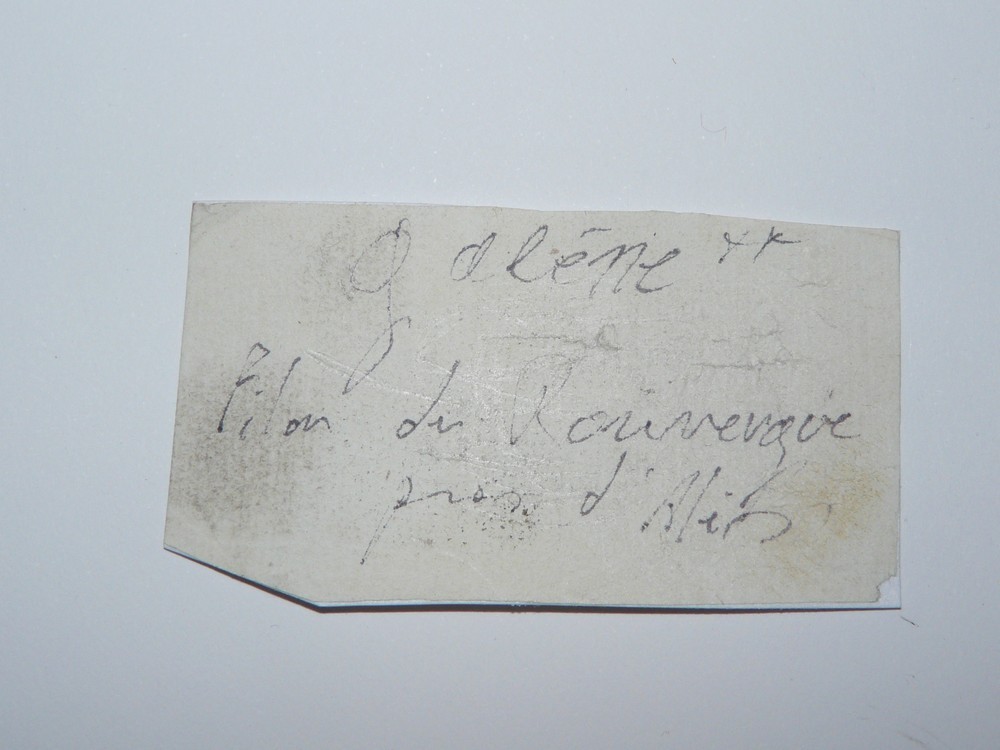 Galène **
Filon du Rouvergue
près d'Alès